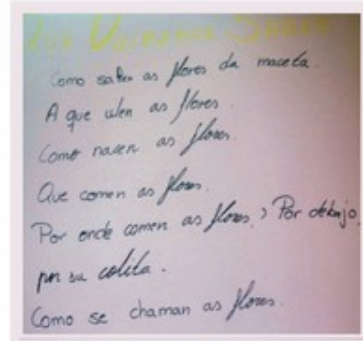 Que Queremos Saber
Como salen as flores da maceta.
A que ulen as flores.
Como nacen as flores.
Que comen as flores.
Por onde comen as flores, > Por debajo,
por su colita.
Como se chaman as flores.